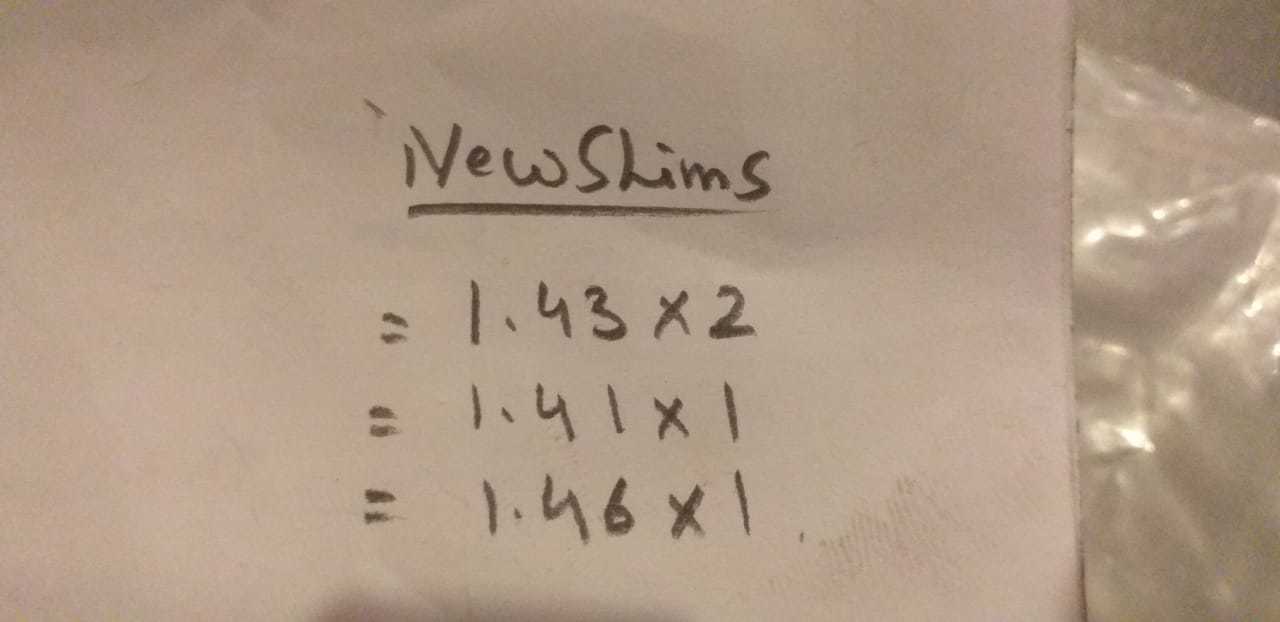 New Shims
= 1.43 x 2
= 1.41 x 1
= 1.46 x 1.